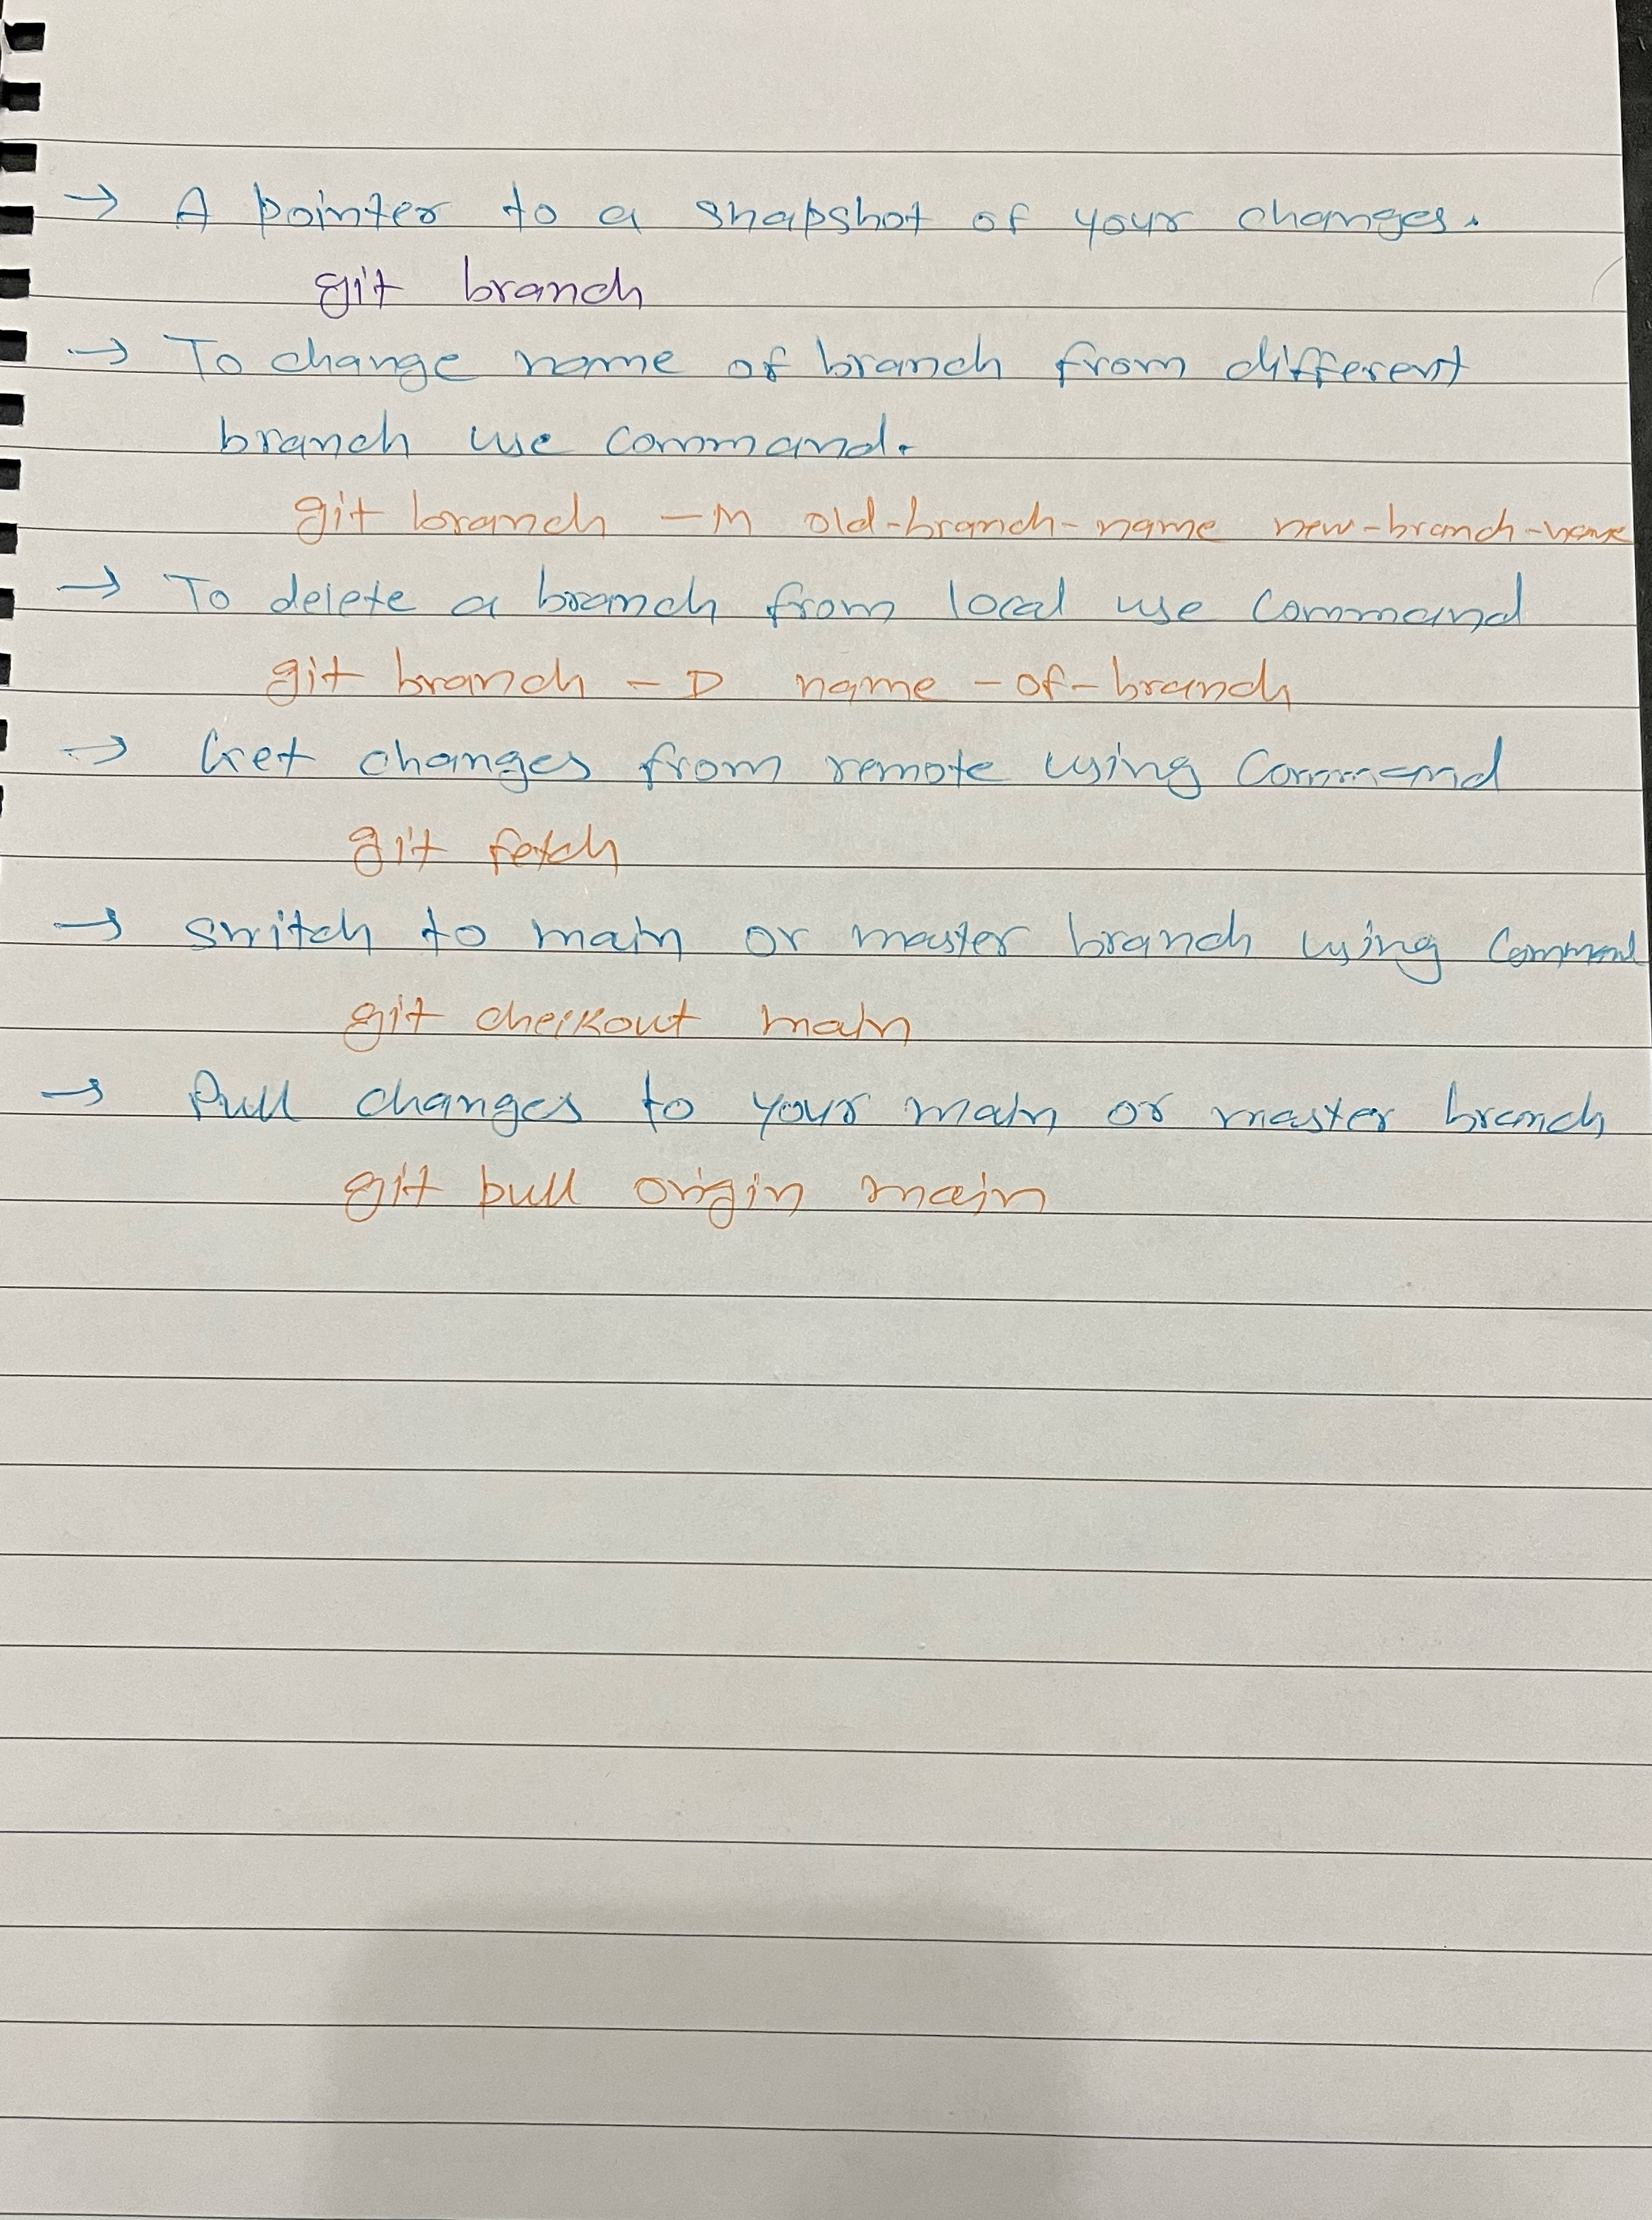 → A pointer to a snapshot of your changes.
git branch
→ To change name of branch from different
branch use command.
git branch -M old-branch-name new-branch-name
→ To delete a branch from local use command
git branch -D name-of-branch
→ Get changes from remote using command
git fetch
→ switch to main or master branch using command
git checkout main
→ Pull changes to your main or master branch
git pull origin main